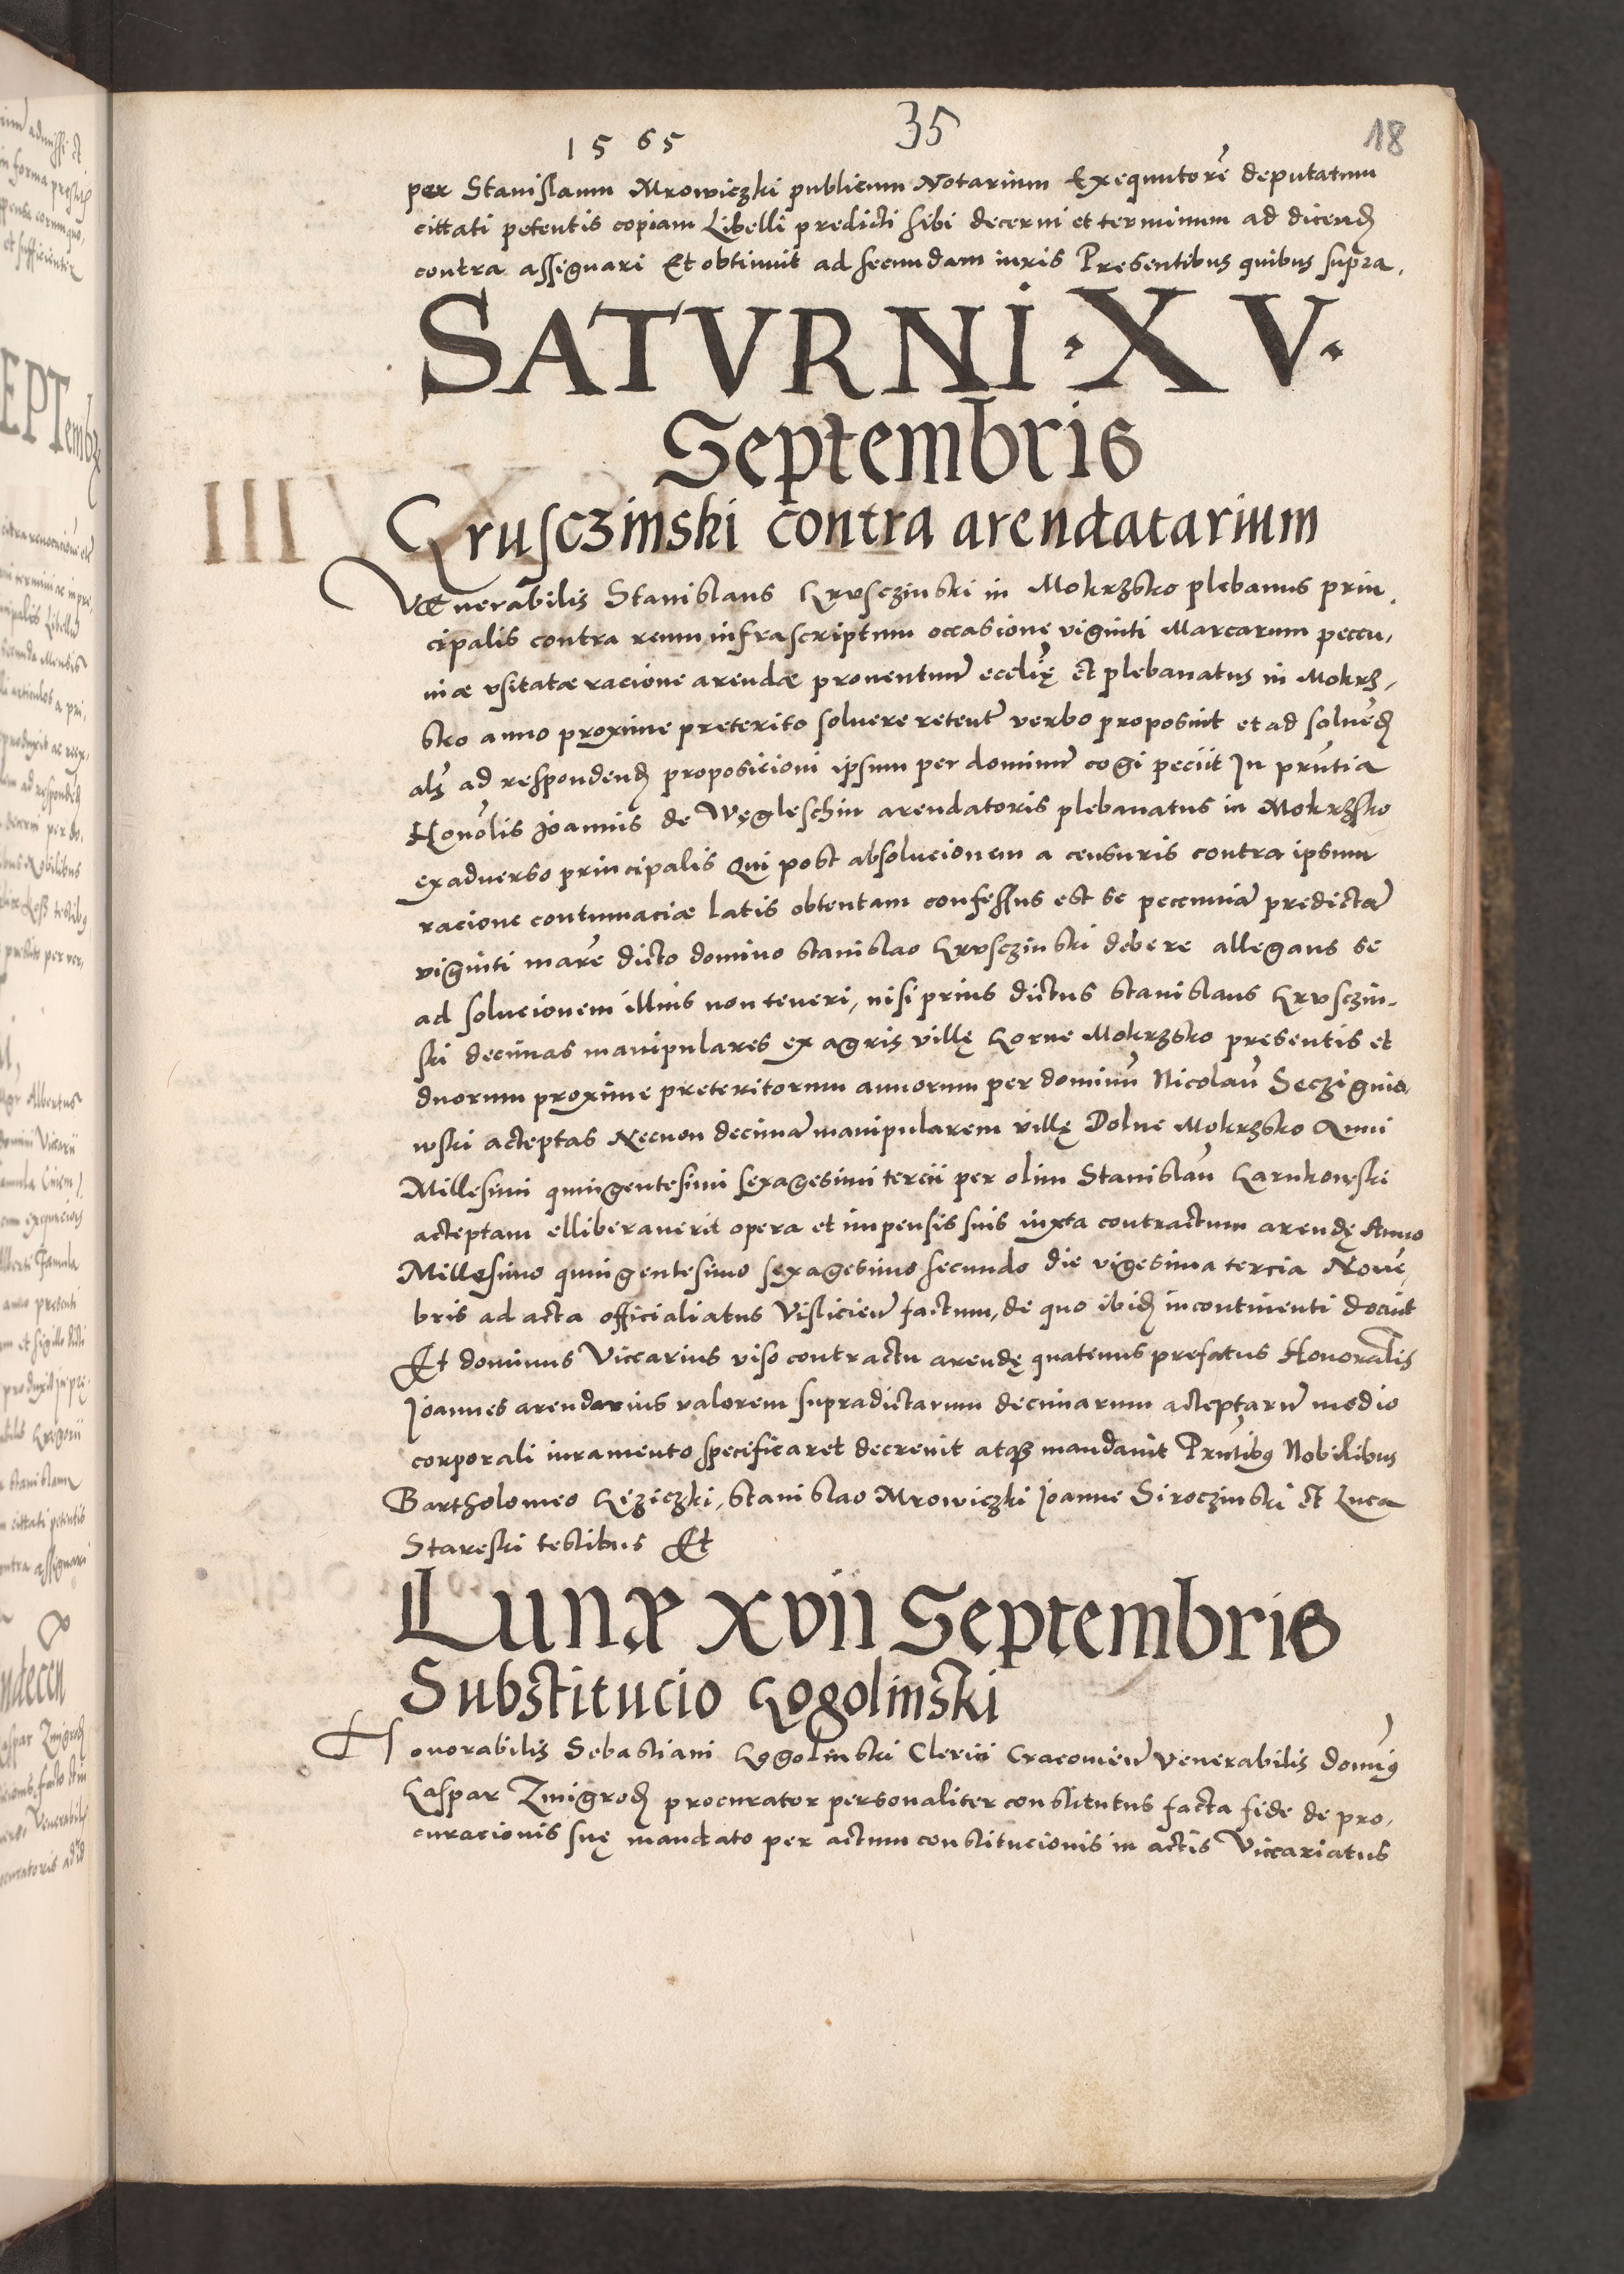 1565 35 18
per Stanislaum Mrowiczki publicum Notarium Exequutorē deputatum
cittati petentis copiam Libelli predicti sibi decerni et terminum ad dicend
contra assignari Et obtinuit ad secundam iuris Presentibus quibus supra.
SATVRNI · XV ·
Septembris
Krusczinski contra arendatarium
Venerabilis Stanislaus Krusczinski in Mokrzsko plebanus prin
cipalis contra reum infrascriptum occasione viginti Marcarum peccu,
niæ vsitatæ racione arendæ prouentuum ecclię et plebanatus in Mokrz,
sko anno proxime preterito soluere retent verbo proposuit et ad soluēd
als ad respondend proposicioni ipsum per dominum cogi peciit In pñtia
Honōlis Joannis de Węgleschin arendatoris plebanatus in Mokrzsko
ex aduerso principalis Qui post absolucionem a censuris contra ipsum
racione contumaciæ latis obtentam confessus est se peccuniā predictā
viginti marc̄ dicto domino Stanislao Krusczinski debere allegans se
ad solucionem illius non teneri, nisi prius dictus Stanislaus Krusczin-
ski decimas manipulares ex agris villę Gorne Mokrzsko presentis et
duorum proxime preteritorum annorum per dominū Nicolaū Secignio,
wski acceptas Necnon decimā manipularem villę Dolne Mokrzsko Anni
Millesimi quingentesimi sexagesimi tercii per olim Stanislaū Karnkowski
acceptam elliberauerit opera et impensis suis iuxta contractum arendę Anno
Millesimo quingentesimo sexagesimo secundo die vigesima tercia Nouē,
bris ad acta officialiatus Vislicien̄ factum, de quo ibid incontinenti docuit
Et dominus Viccarius viso contractu arendę quatenus prefatus Honorālis
Joannes arendarius valorem supradictarum decimarum acceptarū medio
corporali iuramento specificaret decreuit atq3 mandauit Pñtibꝰ Nobilibus
Bartholomeo Kiziczki, Stanislao Mrowiczki Joanne Siroczinski et Luca
Stareski testibus Et
Lunæ xvii Septembris
Substitucio Gogolinski
Honorabilis Sebastiani Gogolinski Clerici Cracouien̄ Venerabilis domiꝰ
Gaspar Zmigrod procurator personaliter constitutus facta fide de pro,
curacionis suę mandato per actum constitucionis in actis Viccariatus